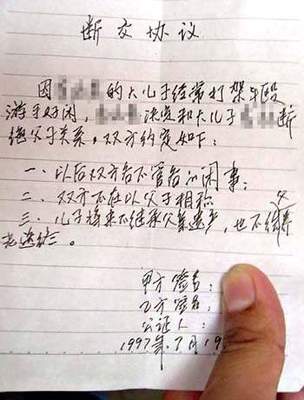 断交协议
因 的大儿子经常打架斗殴
游手好闲, 决定和大儿子 断
绝父子关系,双方约定如下:
一、以后双方各不管各的闲事;
二、双方不在以父子相称
三、儿子将来不继承父亲遗产,也不给父养
老送终。
甲方签名:
乙方签名:
公证人:
1997年7月19